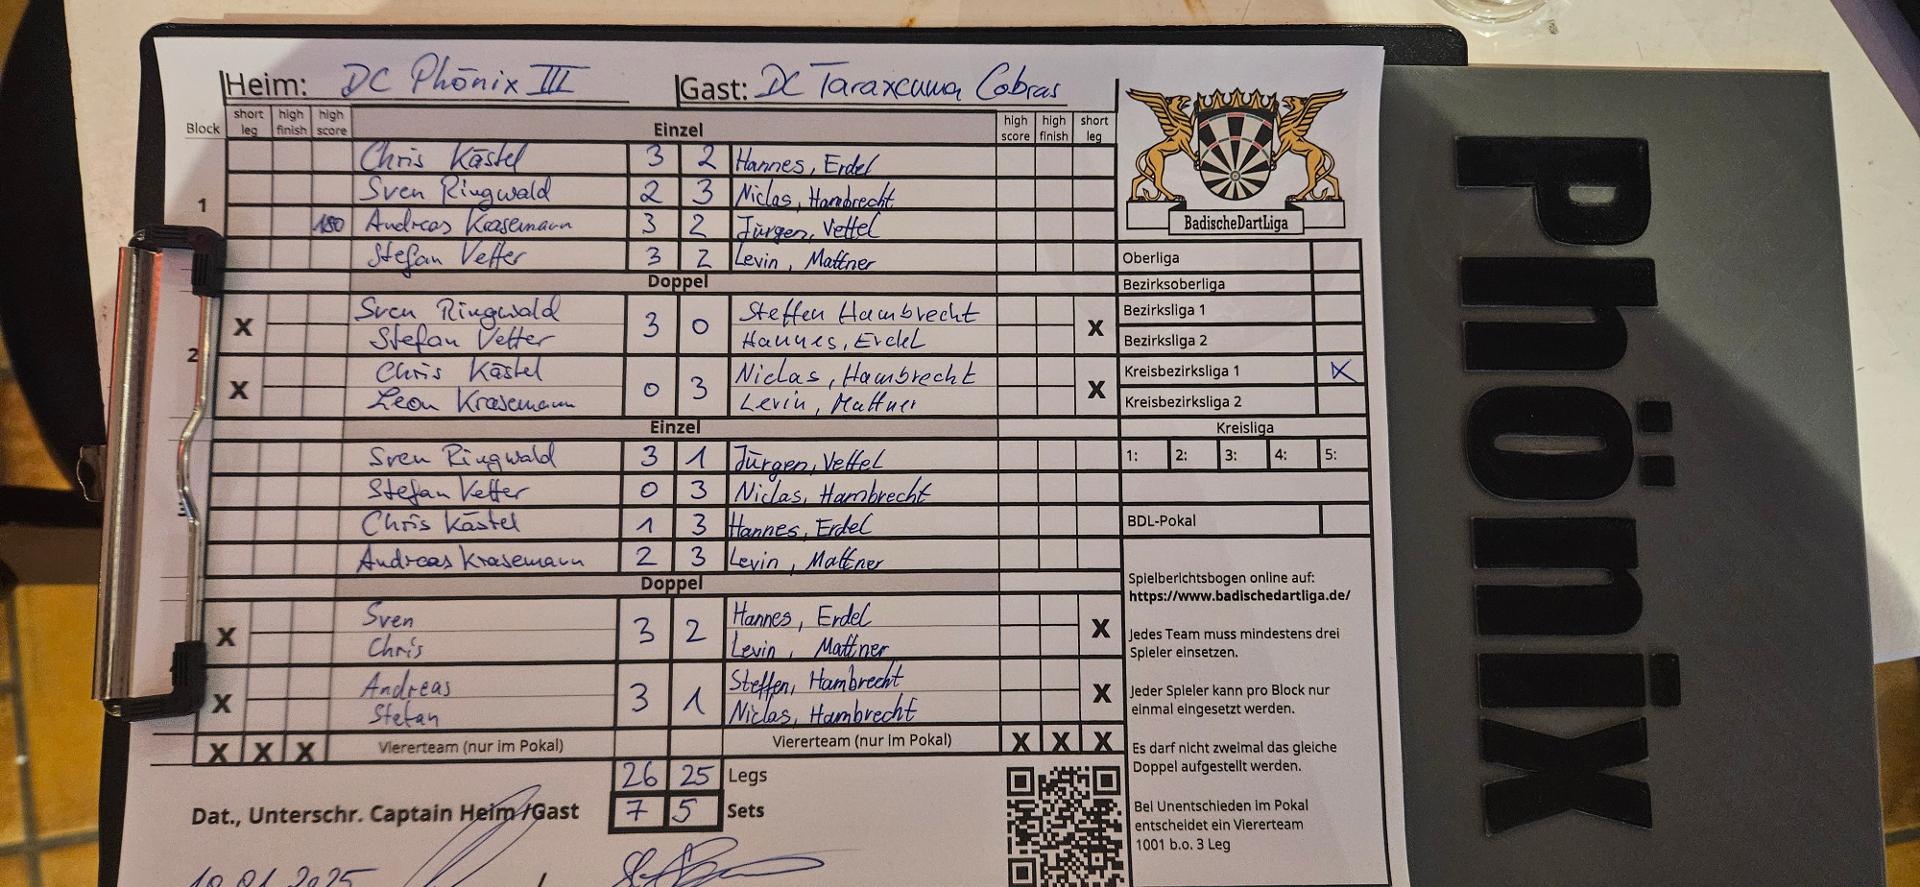 Heim: DC Phönix III Gast: DC Taraxcuma Cobras
Block short leg high finish high score Einzel high score high finish short leg
1
Chris Kästel 3 2 Hannes, Erdel
Sven Ringwald 2 3 Niclas, Hambrecht
180 Andreas Krasemann 3 2 Jürgen, Vettel
Stefan Vetter 3 2 Levin, Mattner
Doppel
2
X Sven Ringwald 3 0 Steffen Hambrecht X
Stefan Vetter Hannes, Erdel
X Chris Kästel 0 3 Niclas, Hambrecht X
Leon Krasemann Levin, Mattner
Einzel
Sven Ringwald 3 1 Jürgen, Vettel
Stefan Vetter 0 3 Niclas, Hambrecht
Chris Kästel 1 3 Hannes, Erdel
Andreas Krasemann 2 3 Levin, Mattner
Doppel
X Sven 3 2 Hannes, Erdel X
Chris Levin, Mattner
X Andreas 3 1 Steffen, Hambrecht X
Stefan Niclas, Hambrecht
X X X Viererteam (nur im Pokal) Viererteam (nur im Pokal) X X X
26 25 Legs
Dat., Unterschr. Captain Heim /Gast 7 5 Sets
10.01.2025 /
BadischeDartLiga
Oberliga
Bezirksoberliga
Bezirksliga 1
Bezirksliga 2
Kreisbezirksliga 1 X
Kreisbezirksliga 2
Kreisliga
1: 2: 3: 4: 5:
BDL-Pokal
Spielberichtsbogen online auf:
https://www.badischedartliga.de/
Jedes Team muss mindestens drei
Spieler einsetzen.
Jeder Spieler kann pro Block nur
einmal eingesetzt werden.
Es darf nicht zweimal das gleiche
Doppel aufgestellt werden.
Bei Unentschieden im Pokal
entscheidet ein Viererteam
1001 b.o. 3 Leg
Phönix